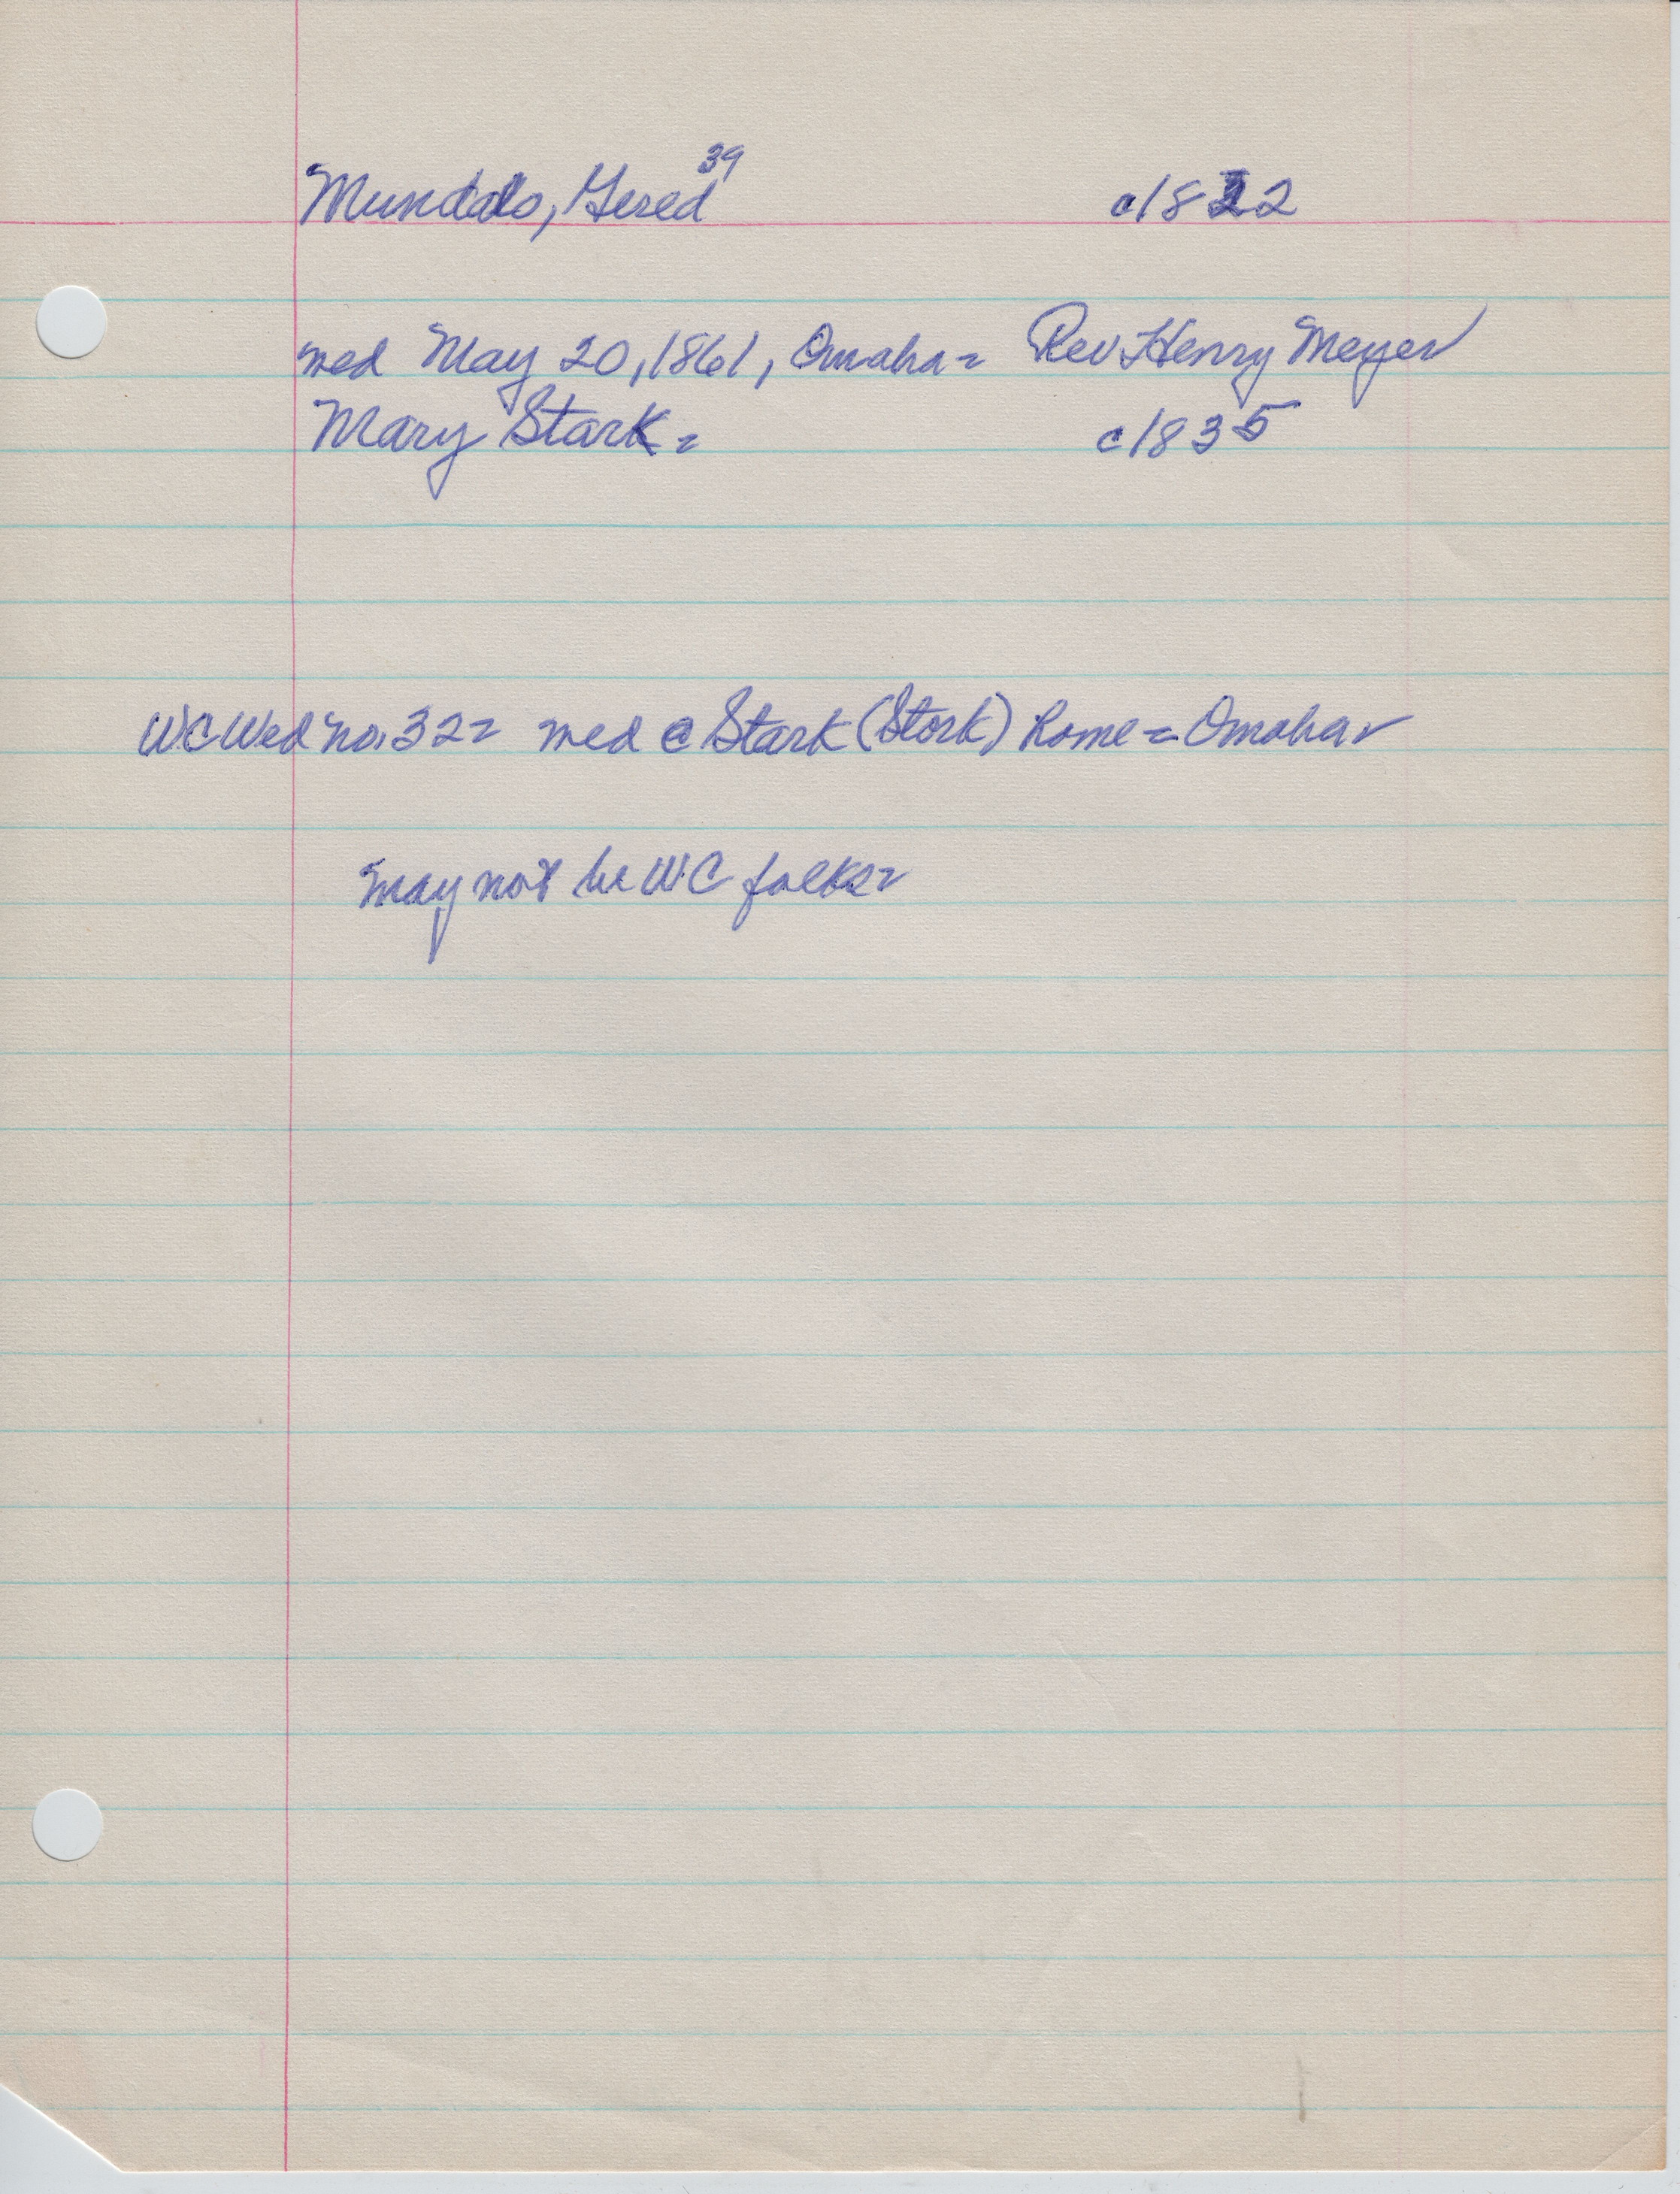 Mundalo, Gered 39 c1822
wed May 20, 1861, Omaha = Rev Henry Meyer
Mary Stark = c1835
WC Wed no. 32 = wed @ Stark (Stork) home = Omaha
may not be WC folks